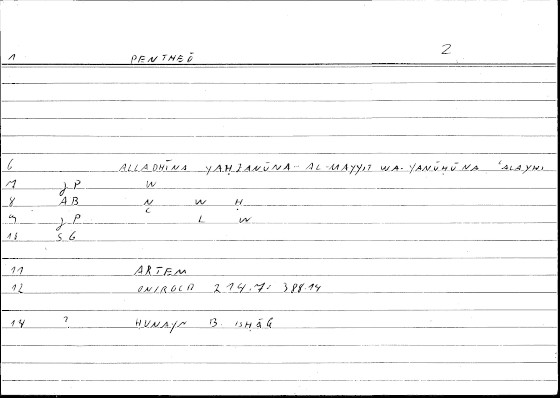 1 PENTHEŌ 2
6 ALLADHĪNA YAḤZANŪNA-AL-MAYYIT WA-YANŪḤŪNA ʿALAYHI
7 jP W
8 AB N W Ḥ
9 jP C L W
10 SG
11 ARTEM
12 ONIROCR 214.7: 388.14
14 ? ḤUNAYN B. ISḤĀQ